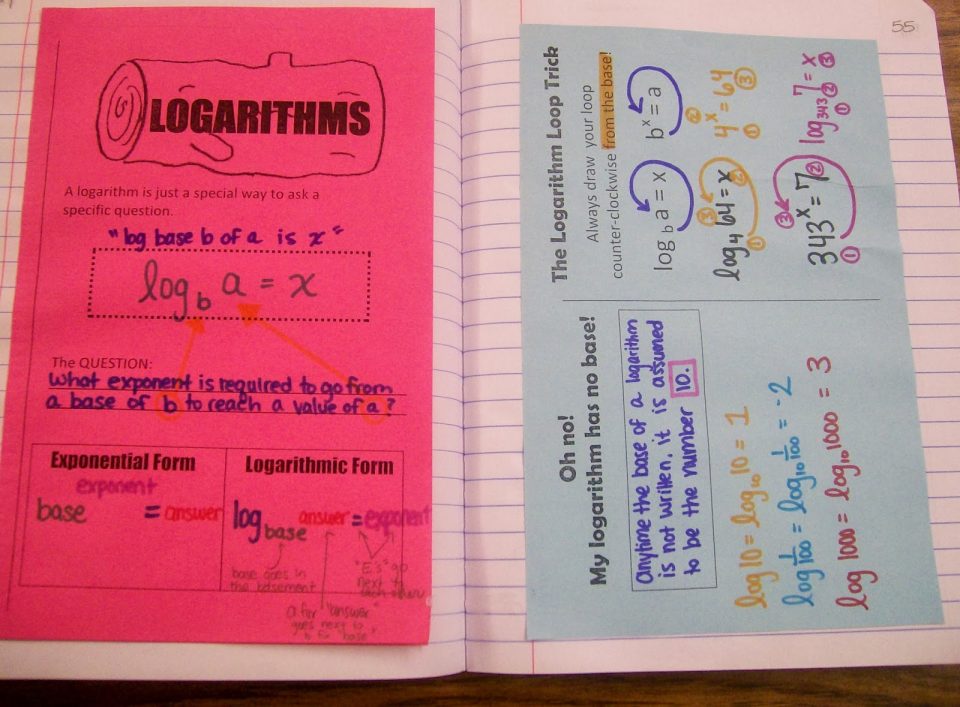 LOGARITHMS
A logarithm is just a special way to ask a
specific question.
"log base b of a is x"
log_b a = x
The QUESTION:
What exponent is required to go from
a base of b to reach a value of a?
Exponential Form
base^exponent = answer
Logarithmic Form
log_base answer = exponent
base goes in
the basement
"E's" go
next to
each other
a for "answer"
goes next to
b for "base".
55
Oh no!
My logarithm has no base!
Anytime the base of a logarithm
is not written, it is assumed
to be the number 10.
log 10 = log₁₀ 10 = 1
log 1/100 = log₁₀ 1/100 = -2
log 1000 = log₁₀ 1000 = 3
The Logarithm Loop Trick
Always draw your loop
counter-clockwise from the base!
log_b a = x b^x = a
log₄ 64 = x 4^x = 64
① ② ③ ① ② ③
343^x = 7 log₃₄₃ 7 = x
① ② ③ ① ② ③